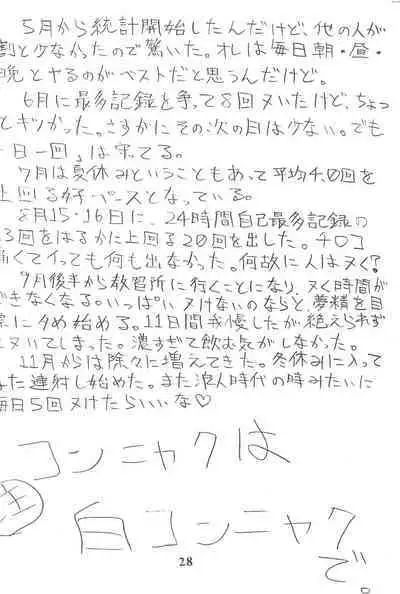 5月から統計開始したんだけど、他の人が
割と少なかったので驚いた。オレは毎日朝・昼・
晩とヤるのがベストだと思うんだけど。
6月に最多記録を争って8回ヌいたけど、ちょっ
とキツかった。さすがにその次の日は少ない。でも
一日一回」は守ってる。
7月は夏休みということもあって平均4.0回を
上回る好ペースとなっている。
8月15・16日に、24時間自己最多記録の
3回をはるかに上回る20回を出した。チ○コ
痛くてイっても何も出なかった。何故に人はヌく?
9月後半から教習所に行くことになり、ヌく時間が
できなくなる。いっぱいヌけないのならと、夢精を目
標にタめ始める。11日間我慢したが絶えられず
ヌいてしまった。濃すぎて飲む気がしなかった。
11月からは除々に増えてきた。冬休みに入って
また連射し始めた。また浪人時代の時みたいに
毎日5回ヌけたらいいな♡
コンニャクは
注
白コンニャク
で。
28